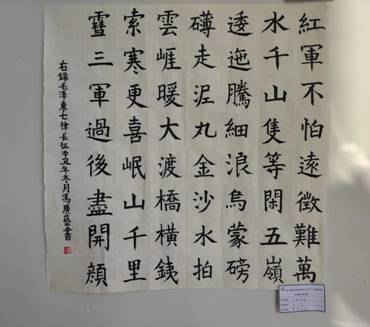 紅軍不怕遠徵難萬
水千山隻等閑五嶺
逶迤騰細浪烏蒙磅
礴走泥丸金沙水拍
雲崖暖大渡橋橫鉄
索寒更喜岷山千里
雪三軍過後盡開顔
右錄毛澤東七律長征辛丑年冬月馮廣書